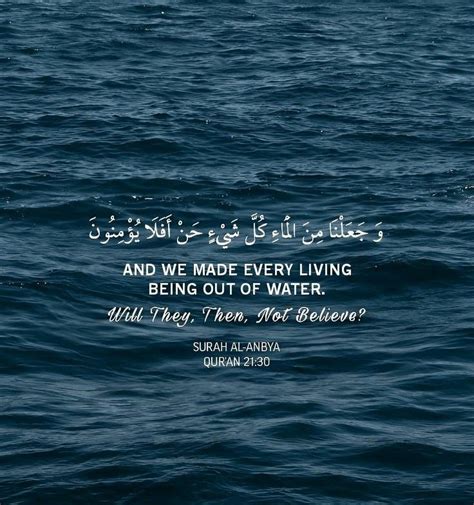 وَ جَعَلْنَا مِنَ الْمَاءِ كُلَّ شَيْءٍ حَنْ أَفَلَا يُؤْمِنُونَ
AND WE MADE EVERY LIVING
BEING OUT OF WATER.
Will They, Then, Not Believe?
SURAH AL-ANBYA
QUR'AN 21:30